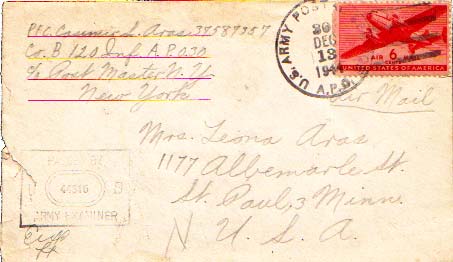 Pfc. Casimir L. Aras 37587357
Co. B 120 Inf. A.P.O 30
c/o Post Master N.Y.
New York
U.S. ARMY POST
DEC
13
A.P.O.
AIR 6 CENTS MAIL
UNITED STATES OF AMERICA
Air Mail
Mrs. Leona Aras
1177 Albemarle St.
St. Paul, 3 Minn.
U. S. A.
PASSED BY
U S
44316
ARMY EXAMINER